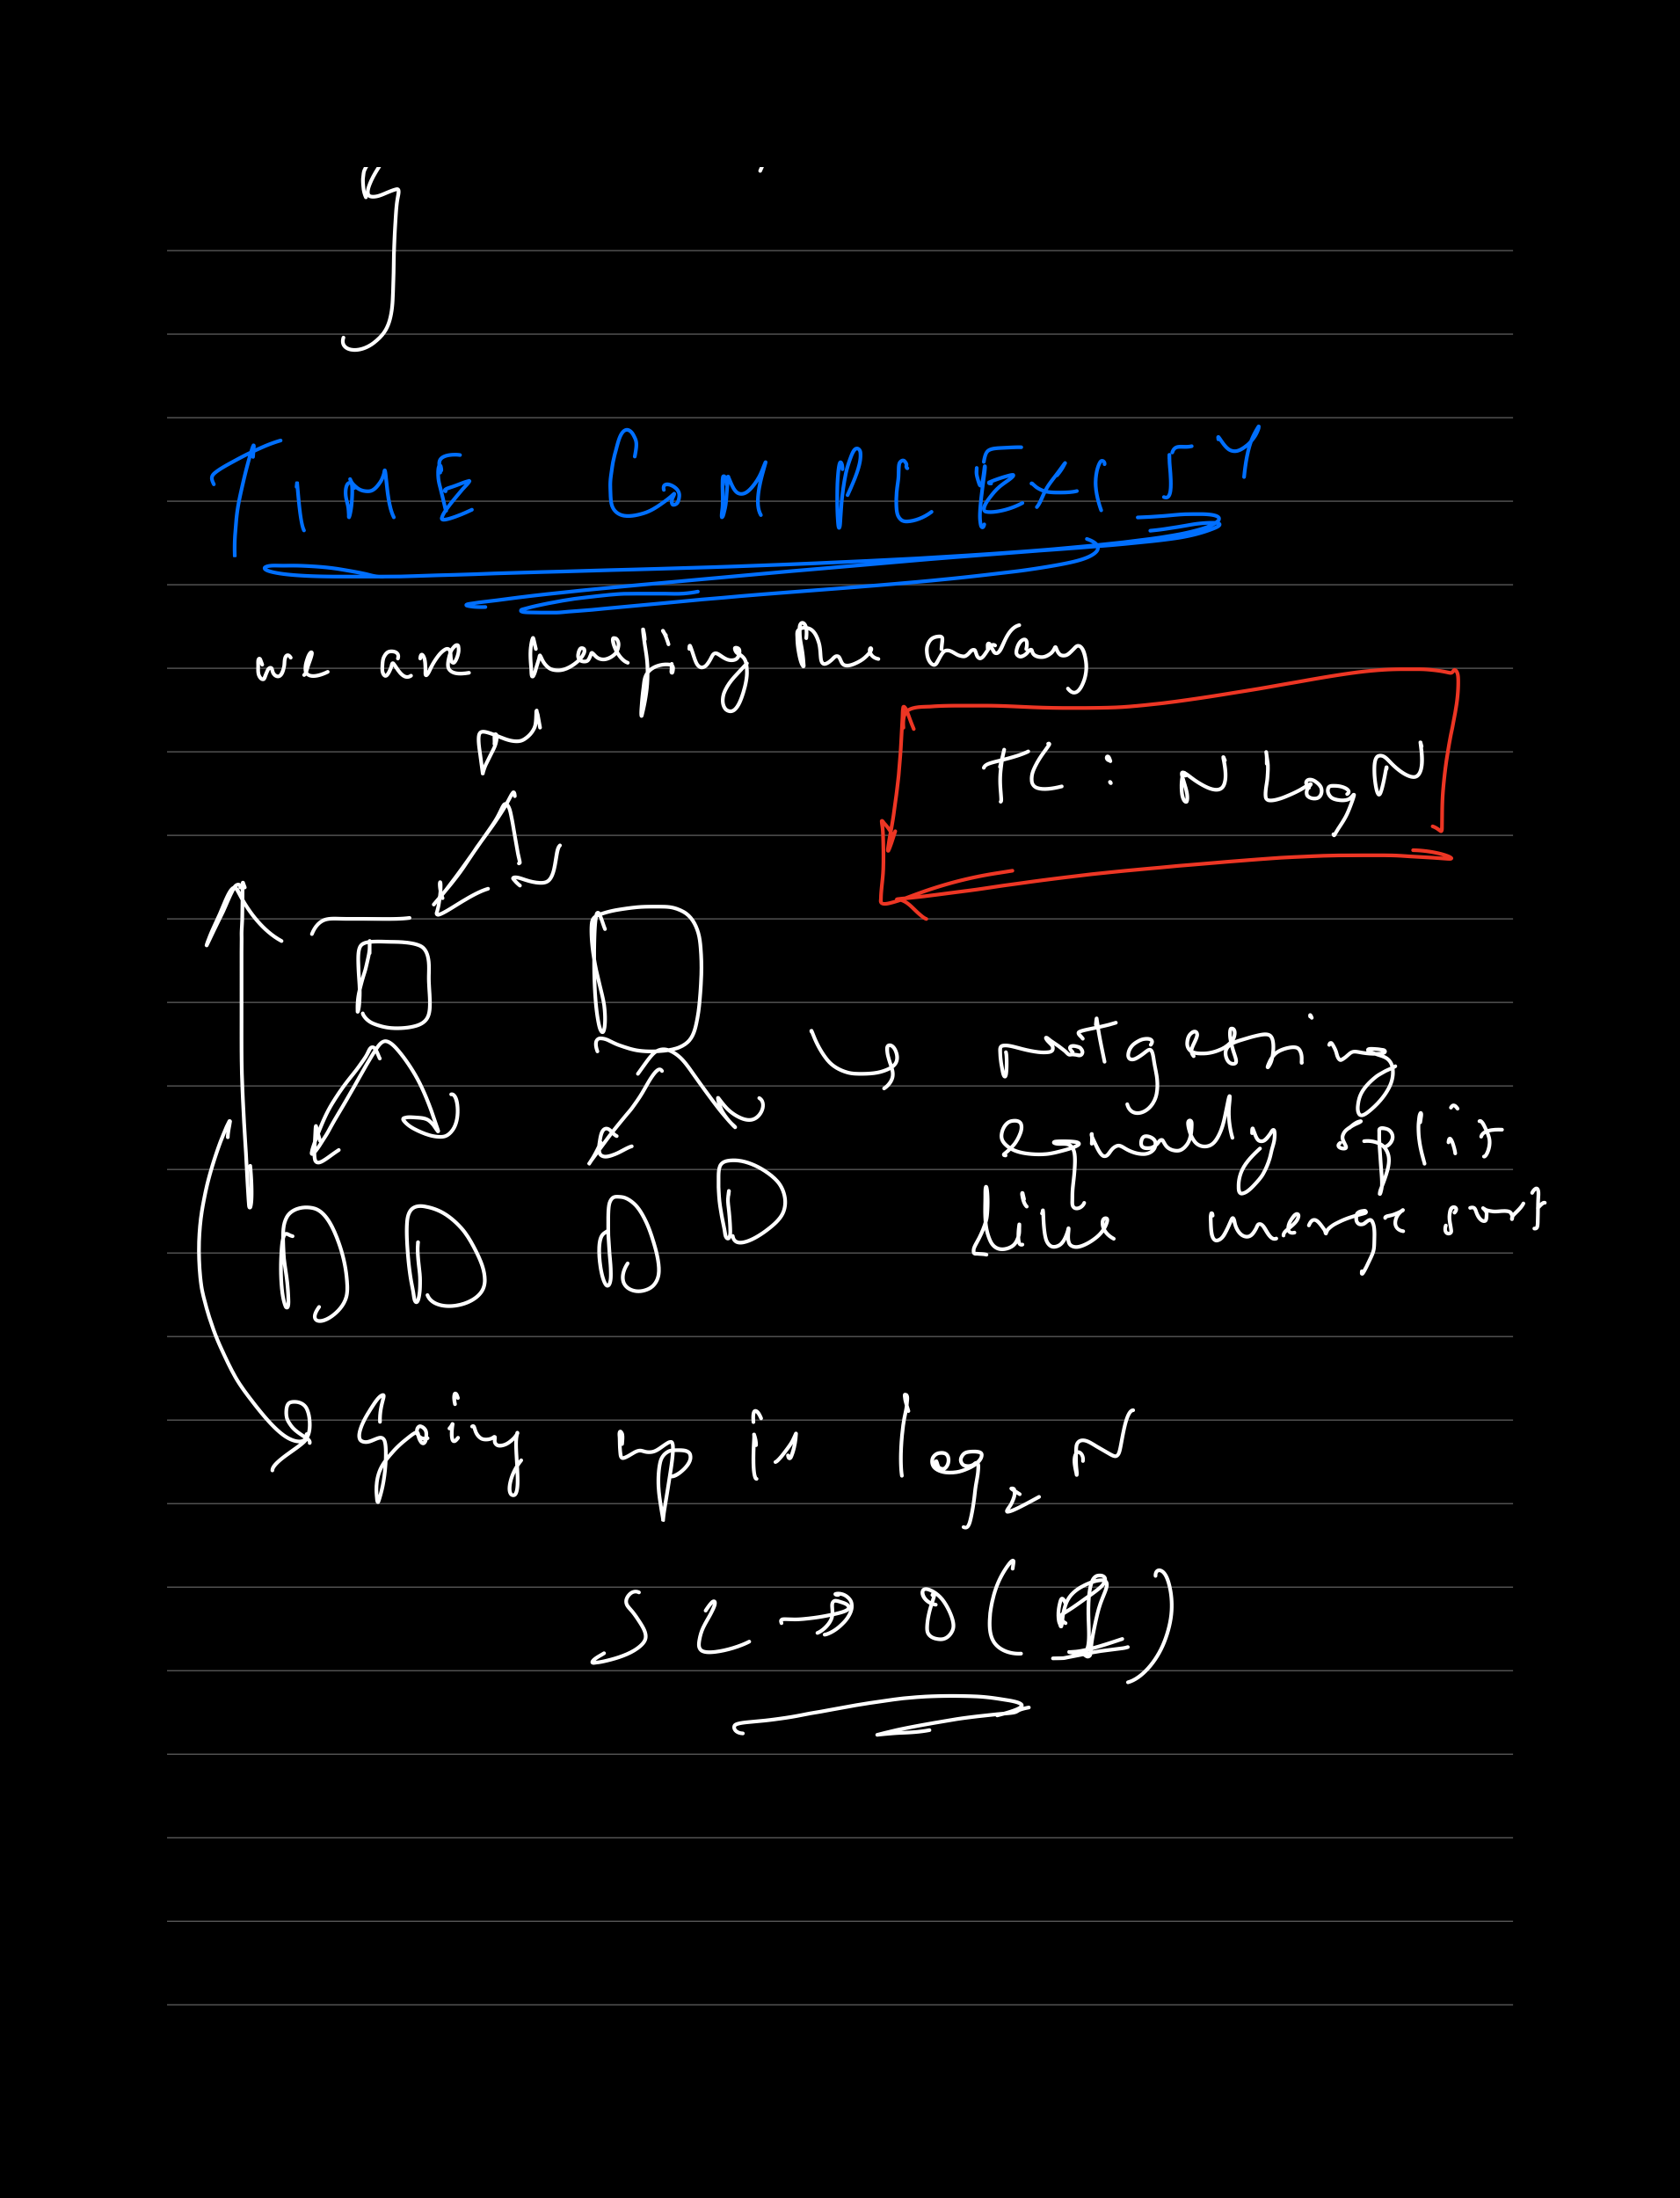 }
TIME COMPLEXITY
we are halfing the array
N
TC : N Log N
not getting
equally split
like merge sort
Going up is log2 N
SC → O(1)